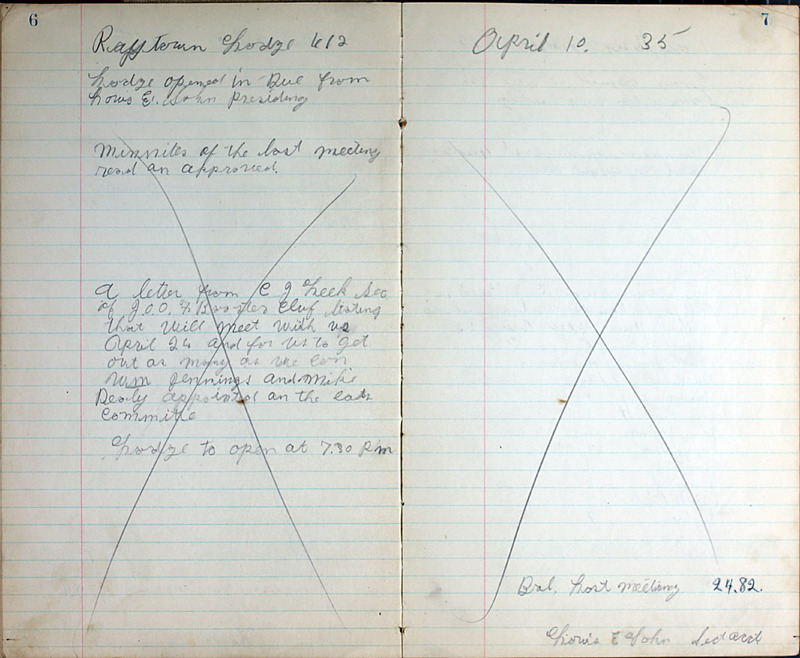 6
Rafftown Lodge 612
Lodge opened in Due from
Louis E. John Presiding
Minnites of the last meeting
read an approved.
A letter from C J Cheek Sec
of I.O.O.F. Booster Cluf stating
that Will meet with us
April 24 and for us to get
out as many as we can
Wm Jennings and Mike
Dealy appointed an the eats
Committe
Lodge to open at 7.30 P.m
7
April 10. 35
Bal. Last meeting 24.82.
Louis E John